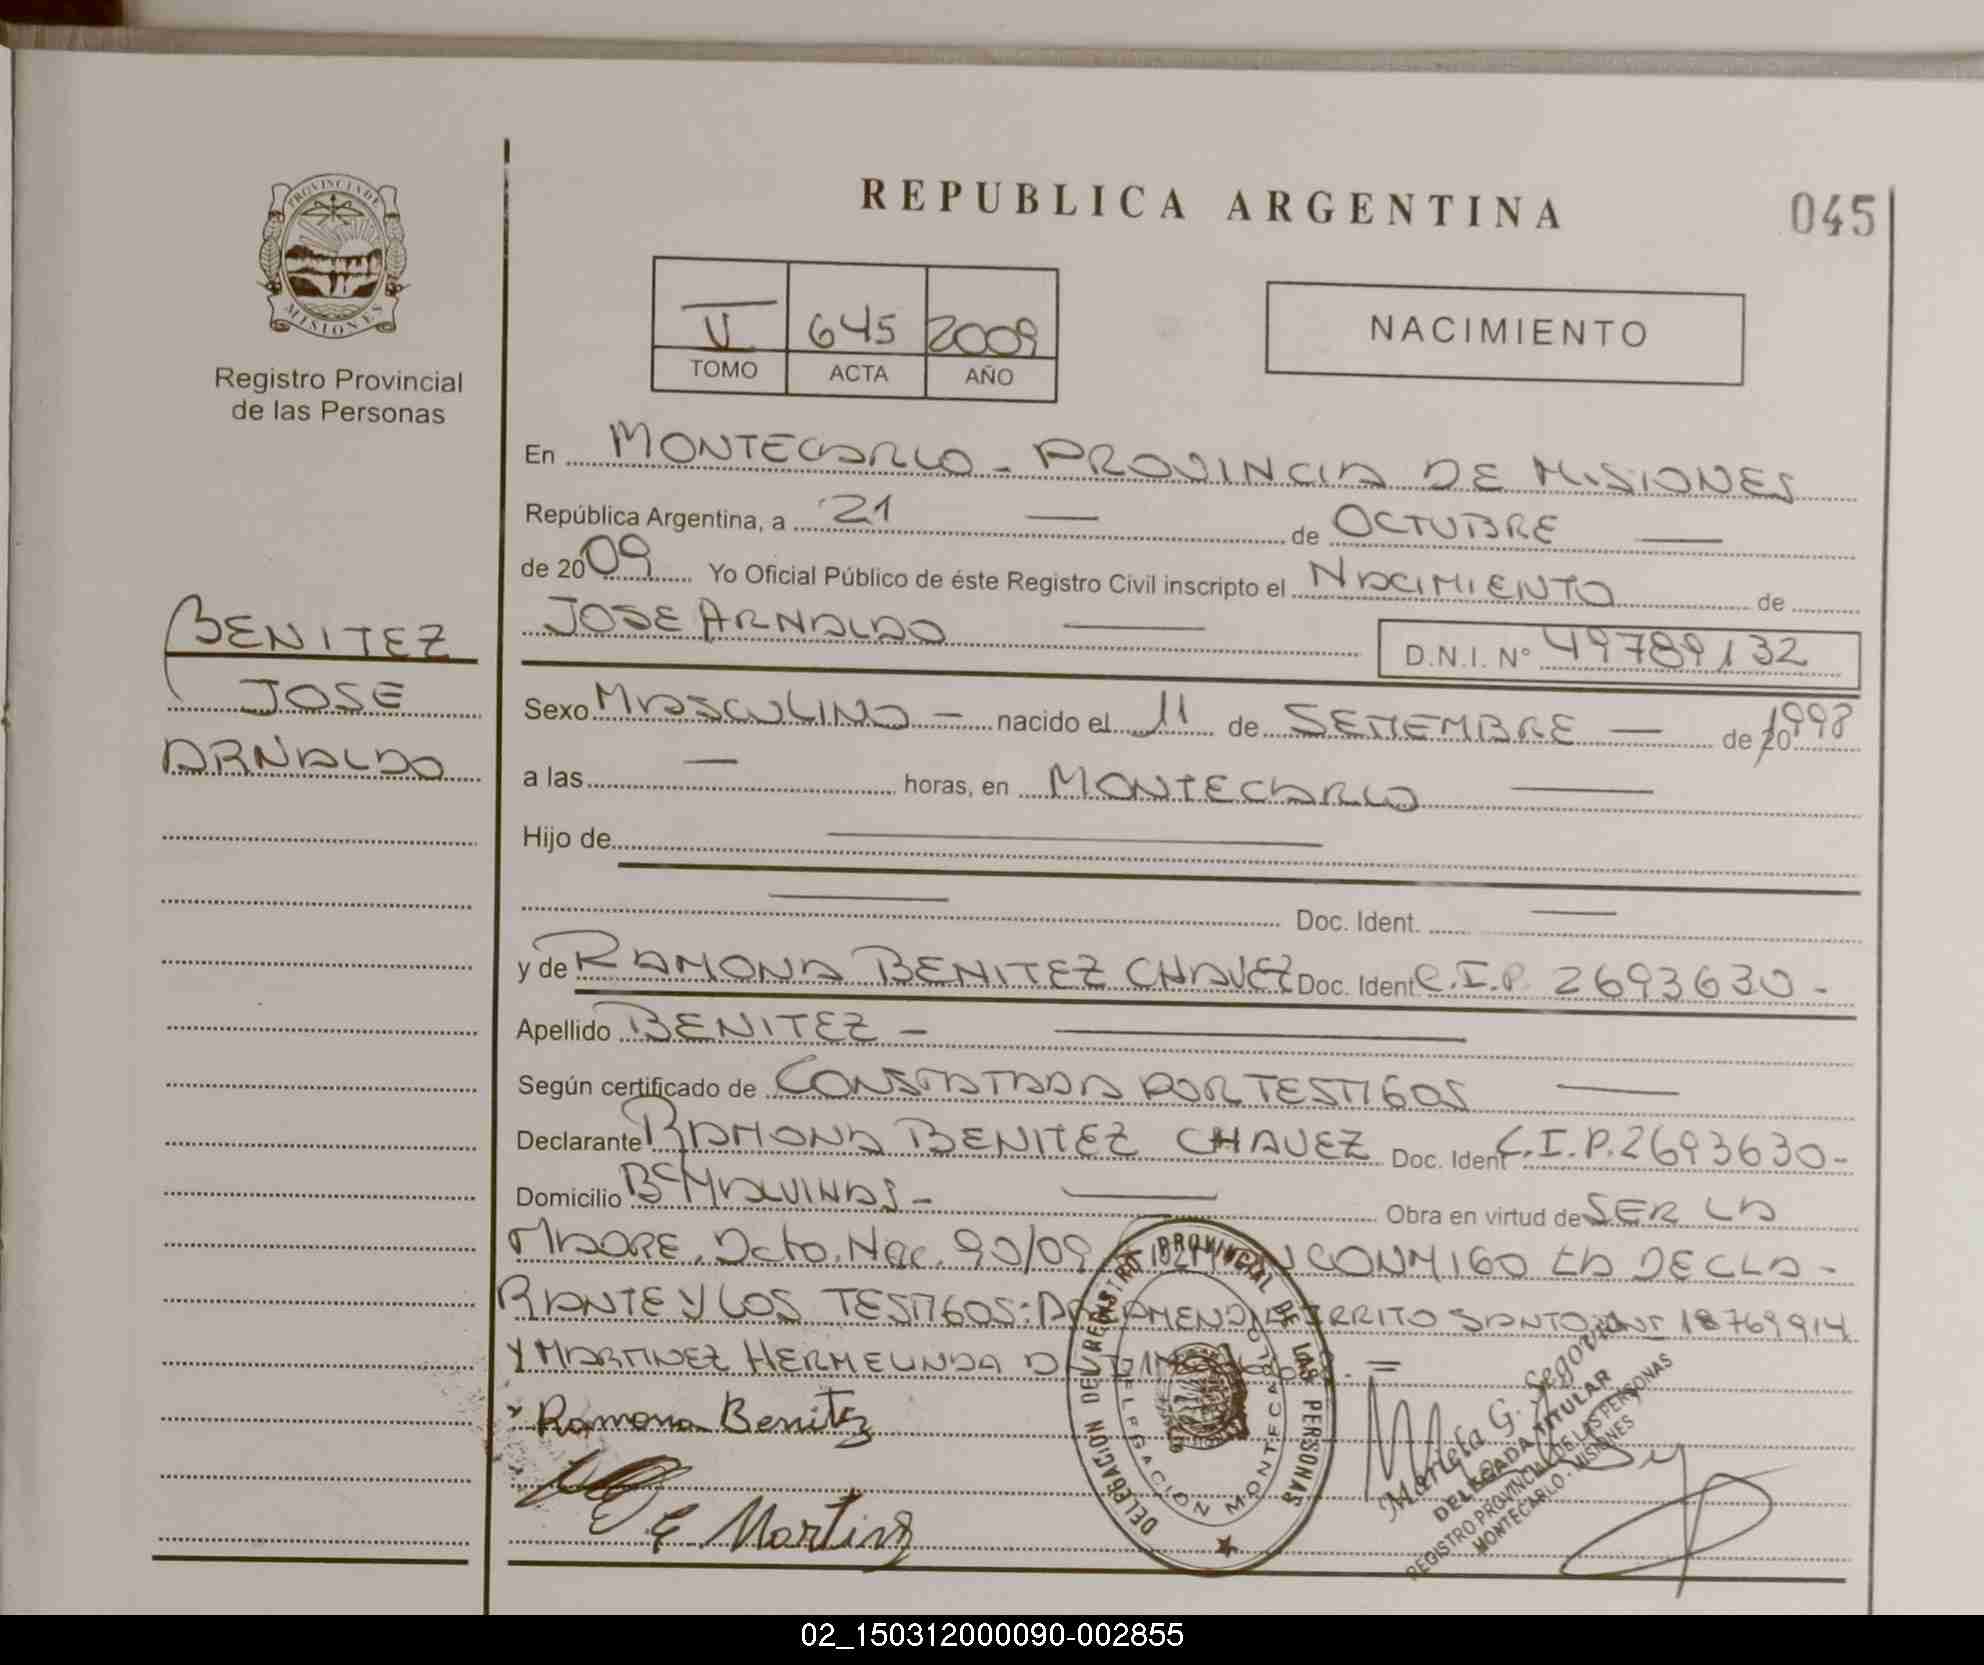 PROVINCIA DE
MISIONES
Registro Provincial
de las Personas
REPUBLICA ARGENTINA
045
V 645 2009
TOMO ACTA AÑO
NACIMIENTO
En MONTECARLO - PROVINCIA DE MISIONES
República Argentina, a 21 — de OCTUBRE —
de 2009 Yo Oficial Público de éste Registro Civil inscripto el NACIMIENTO de
JOSE ARNALDO — D.N.I. Nº 49789132
BENITEZ
JOSE
ARNALDO
Sexo MASCULINO — nacido el 11 de SETIEMBRE — de 20 1998
a las — horas, en MONTECARLO —
Hijo de —
— Doc. Ident. —
y de RAMONA BENITEZ CHAVEZ Doc. Ident C.I.P. 2693630-
Apellido BENITEZ - —
Según certificado de CONSTATADA POR TESTIGOS —
Declarante RAMONA BENITEZ CHAVEZ Doc. Ident C.I.P. 2693630-
Domicilio Bº MALVINAS - — Obra en virtud de SER LA
MADRE. Dcto. Nac. 90/09 CONMIGO LA DECLA-
RANTE Y LOS TESTIGOS: SANTO 18769914
Y MARTINEZ HERMELINDA
Ramona Benitez
Martinez
DELEGACION DEL REGISTRO PROVINCIAL DE LAS PERSONAS
DELEGACION MONTECARLO
Mariela G. Segovia
DELEGADA TITULAR
REGISTRO PROVINCIAL DE LAS PERSONAS
MONTECARLO - MISIONES
02_150312000090-002855